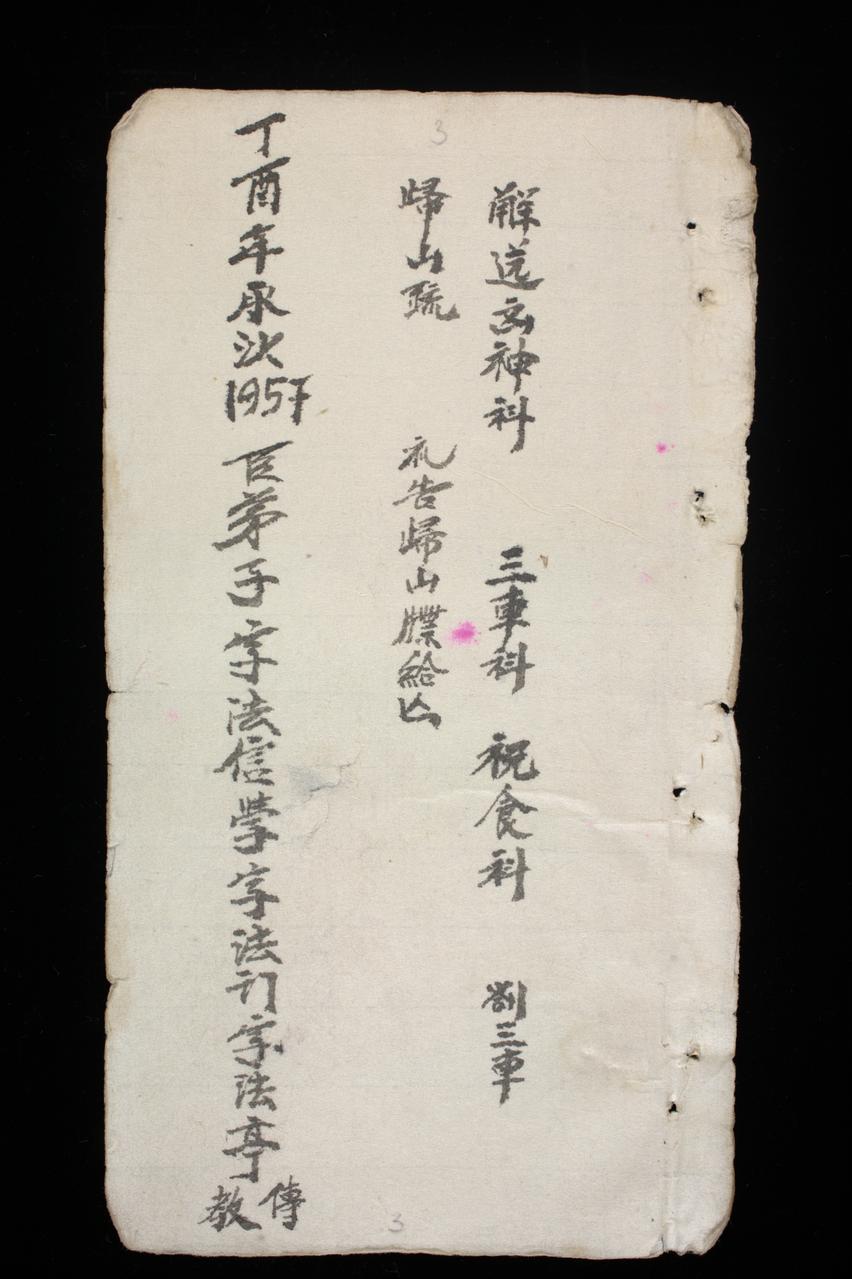 解送玄神科 三車科 祝食科 劄三車
歸山疏 礼告歸山牒給凶
丁酉年承次1957 臣弟子字法信學字法訂字法亭傳教
3
3